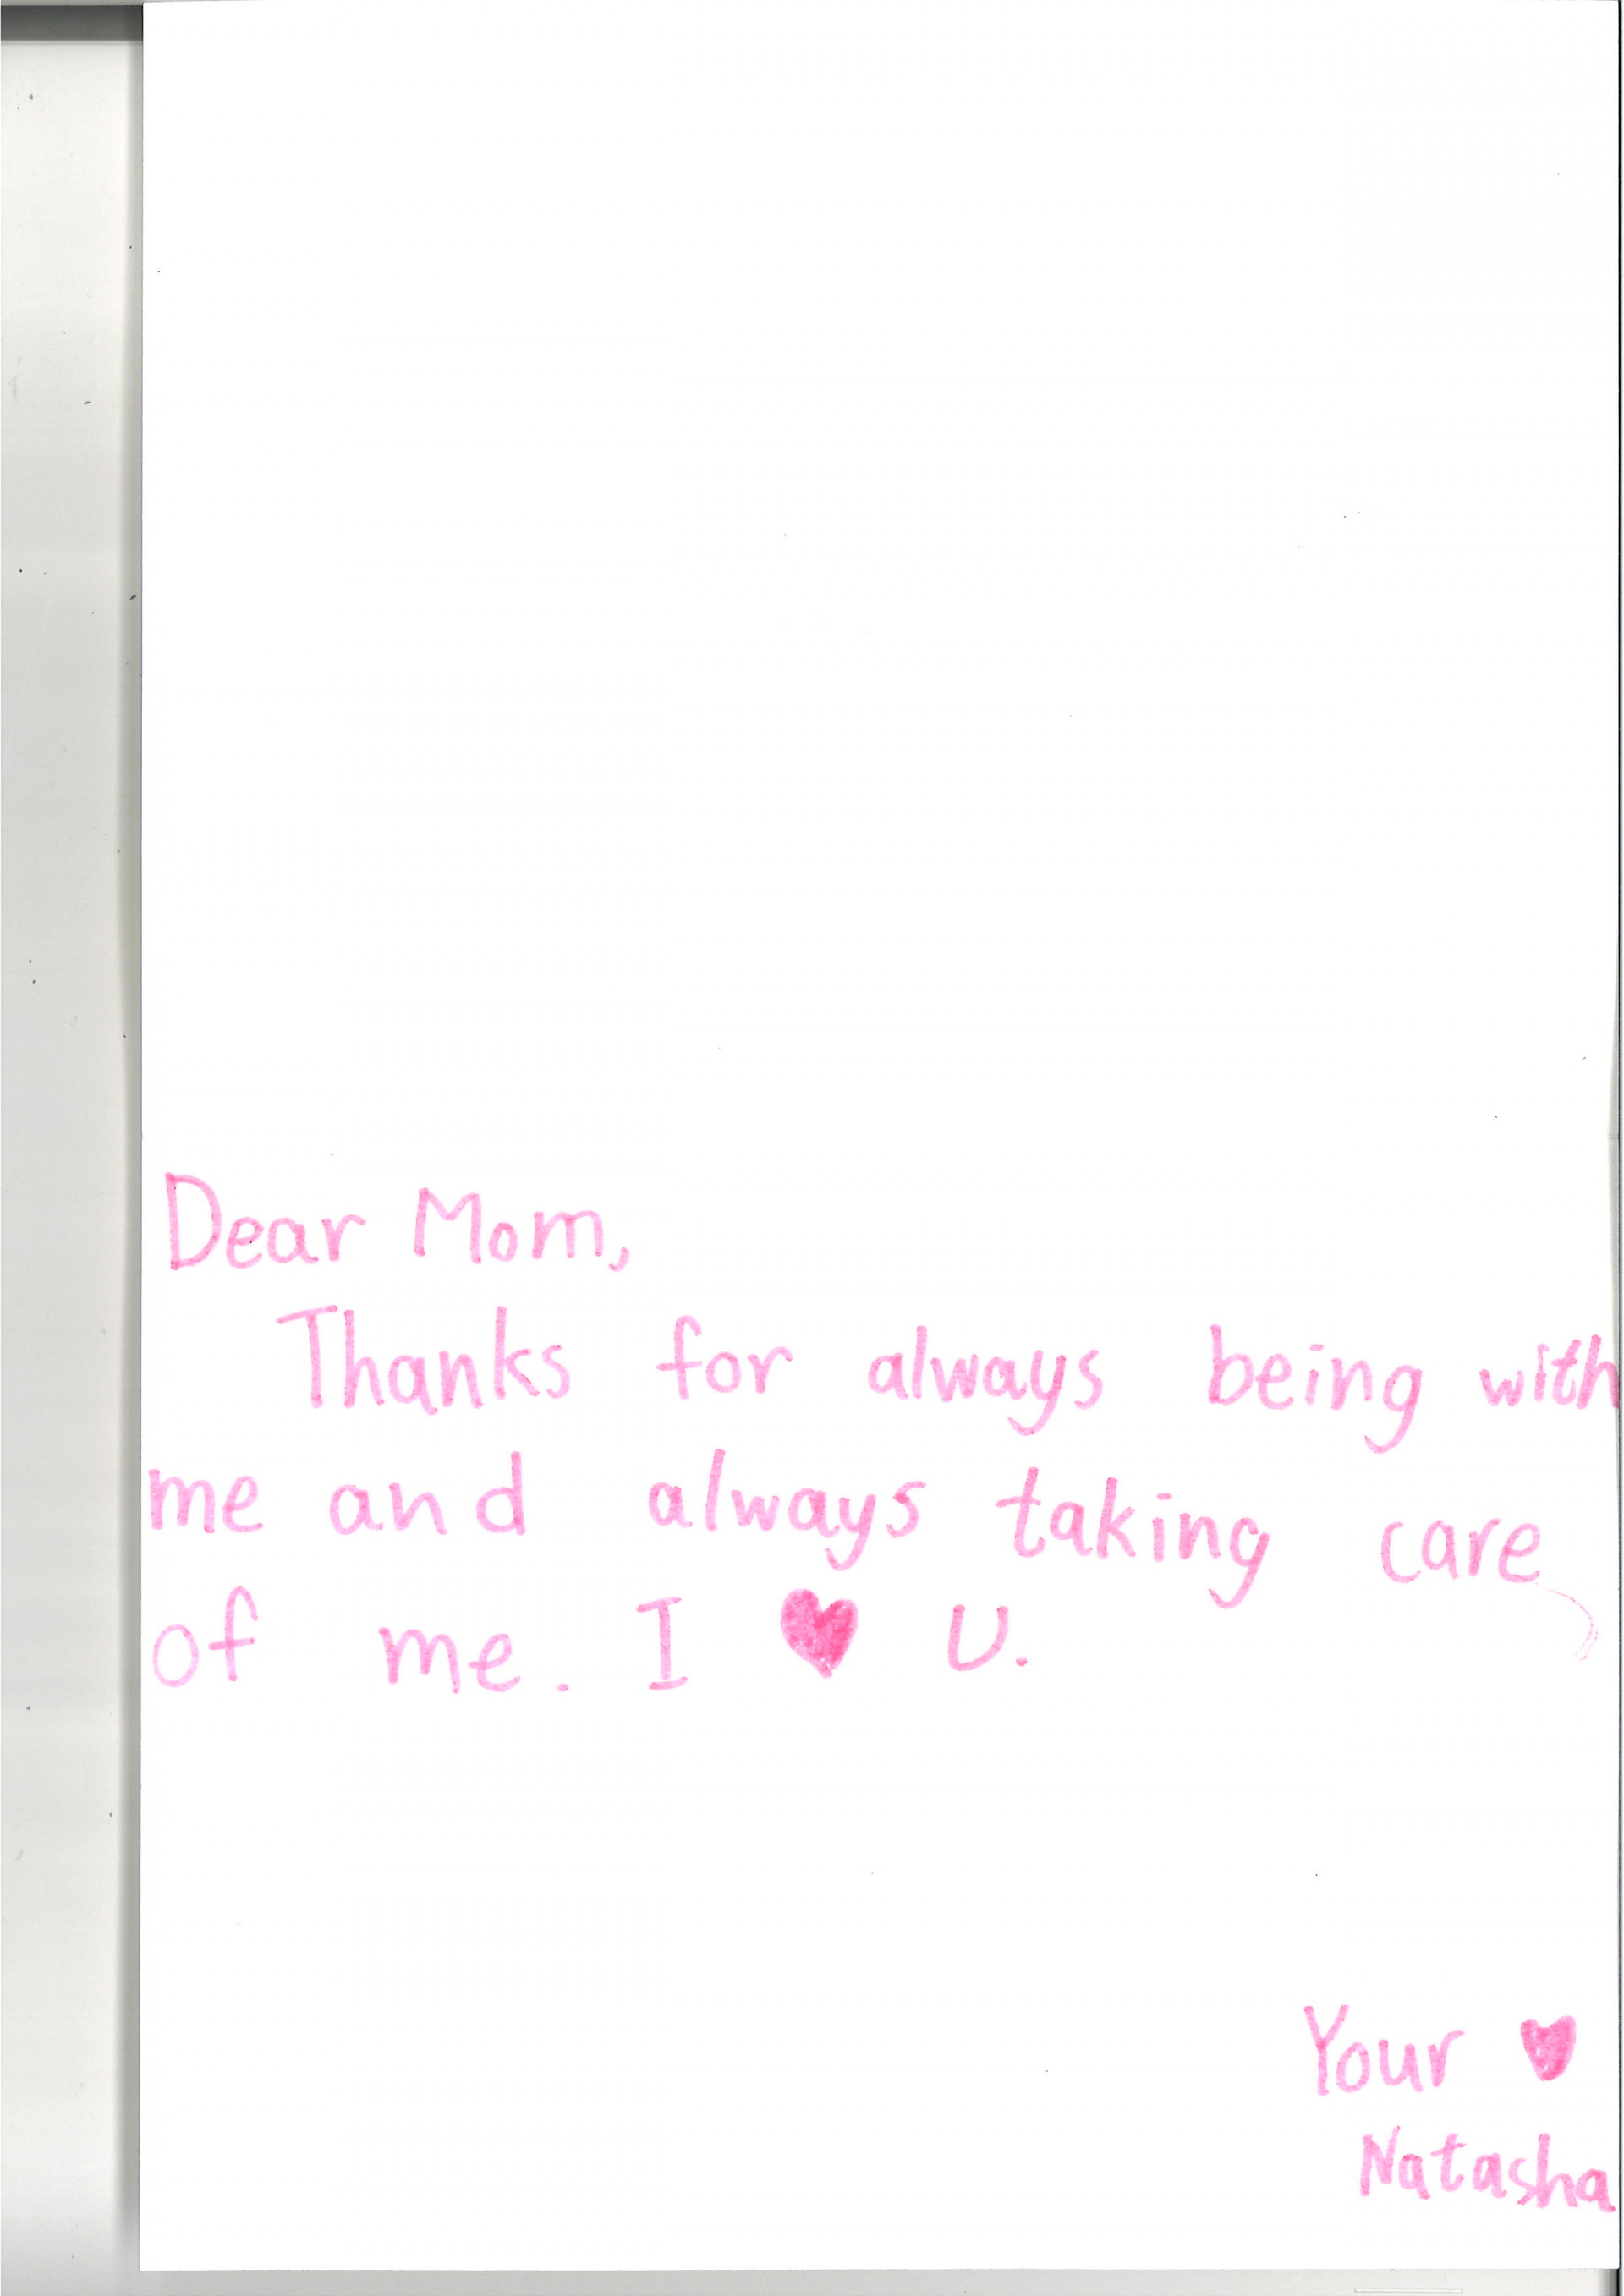 Dear Mom,
Thanks for always being with
me and always taking care
of me. I ♥ U.
Your ♥
Natasha